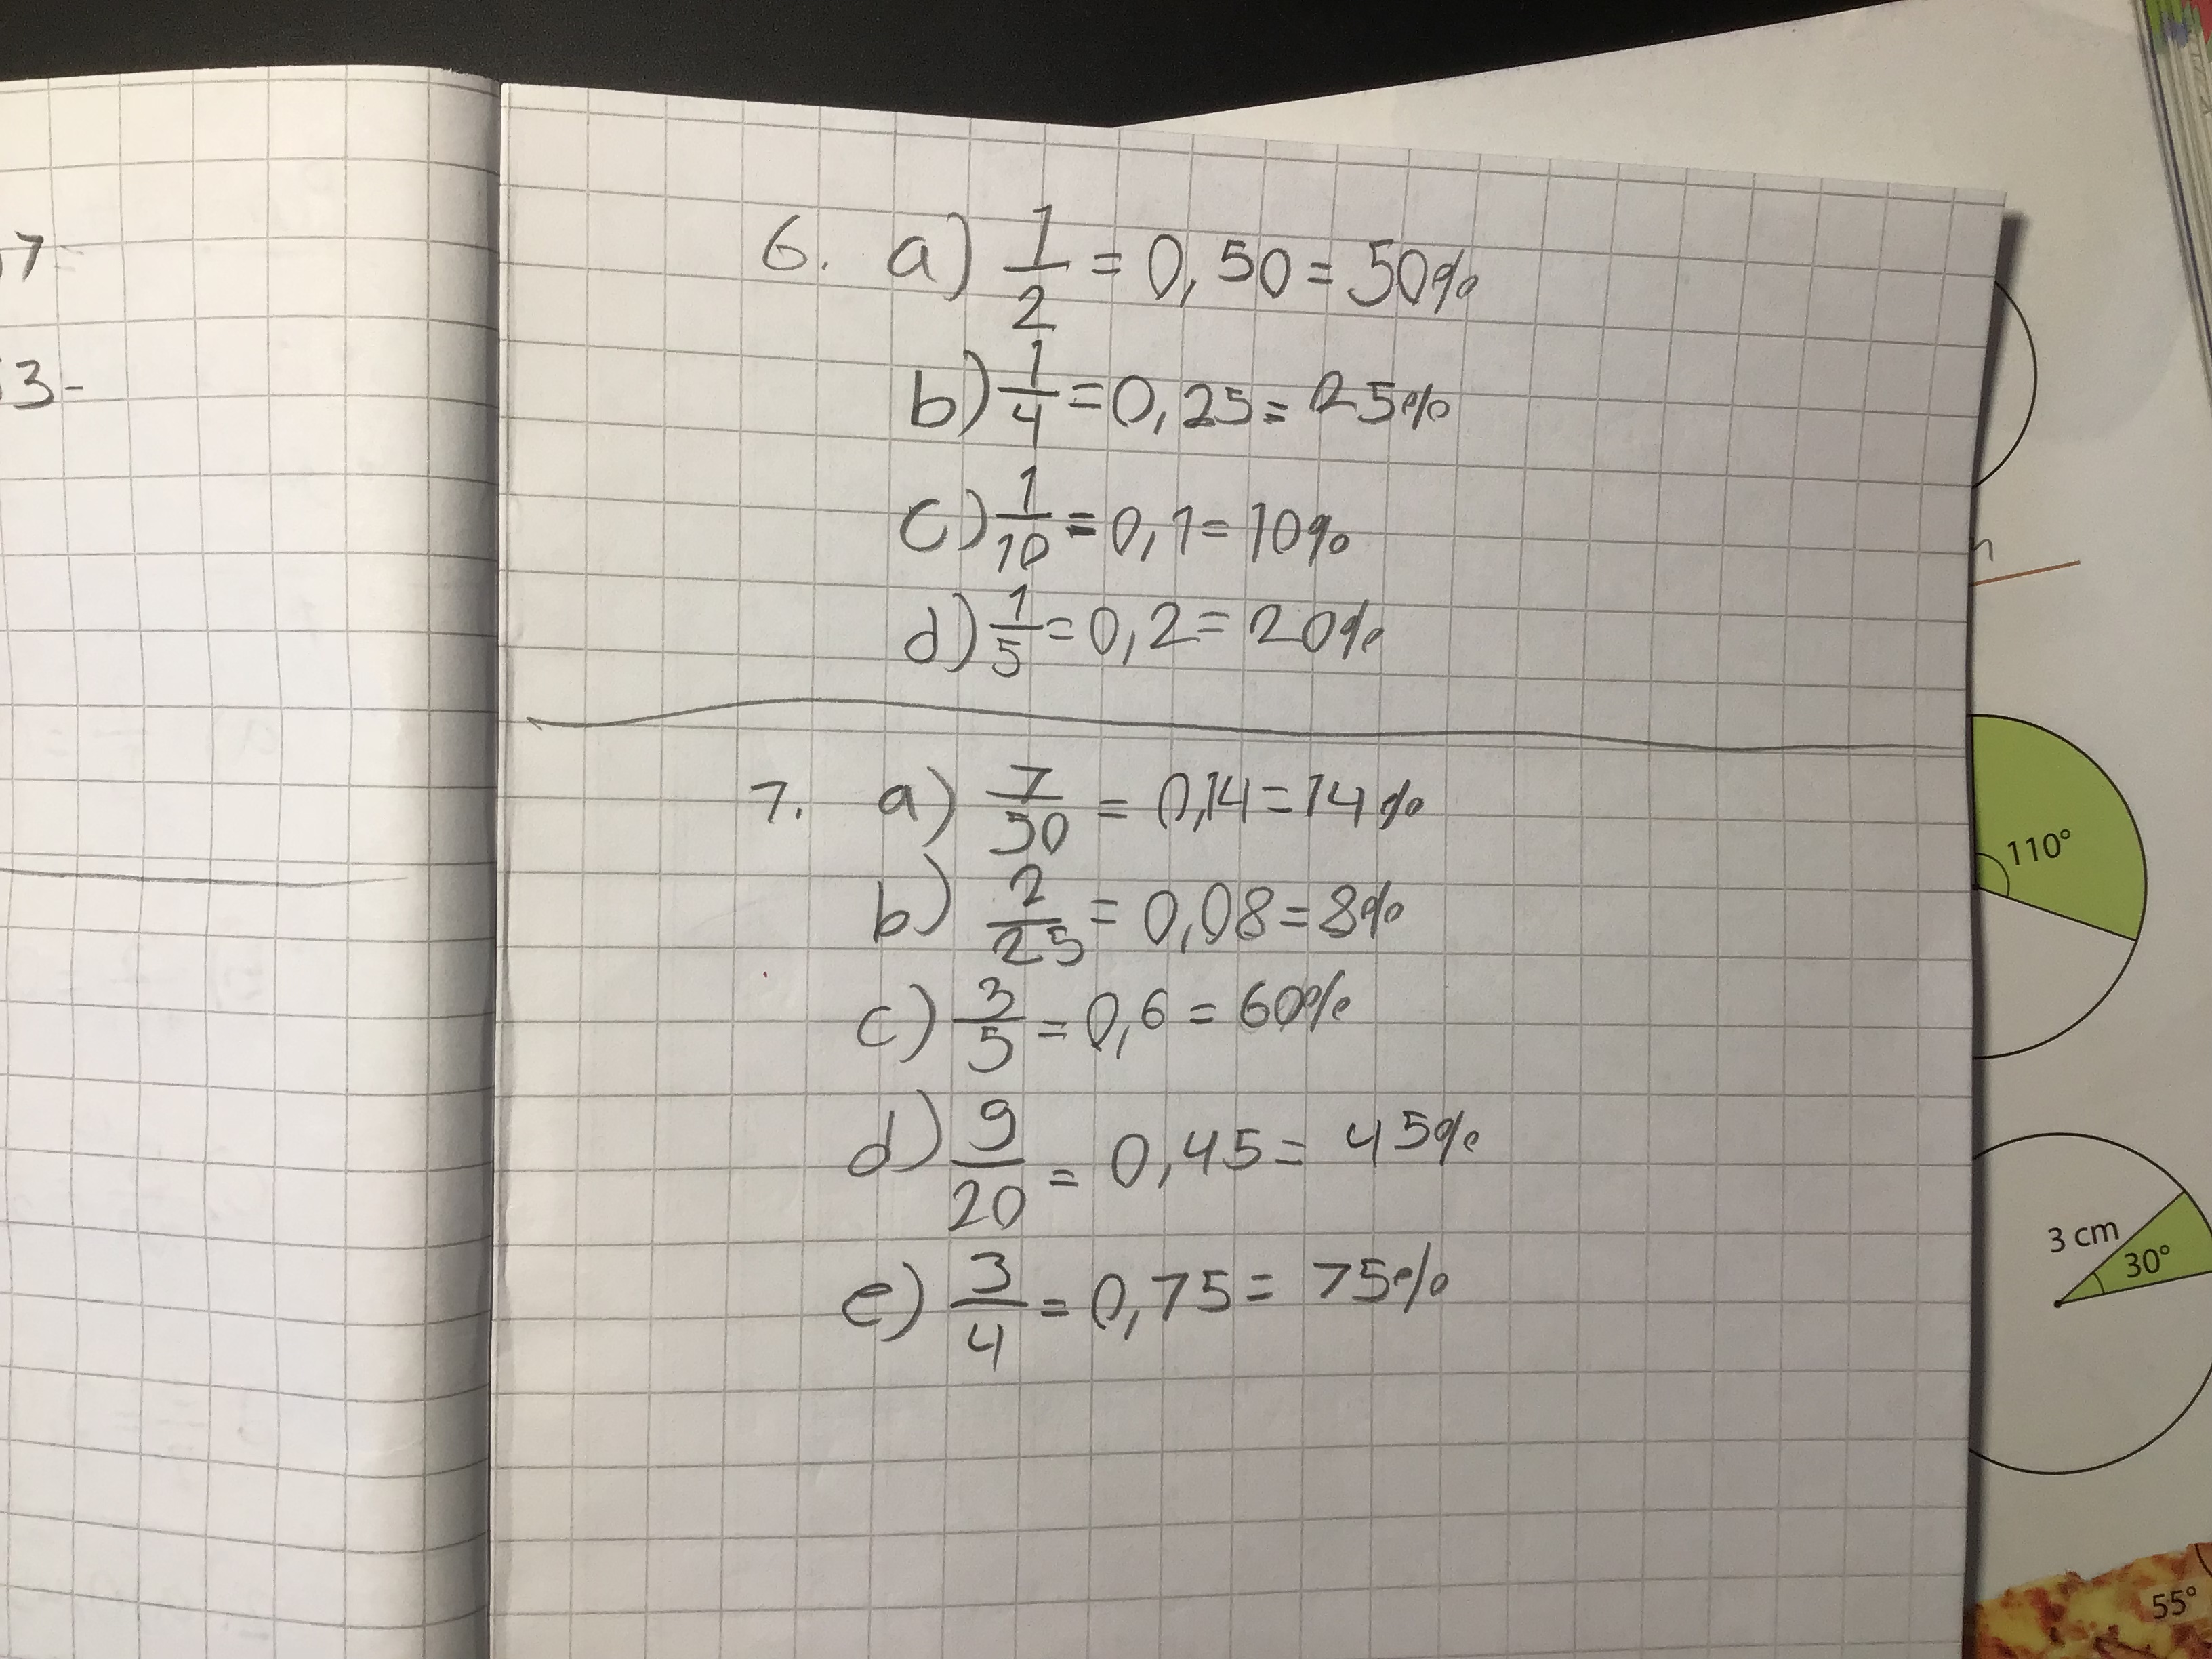 17
3-
6. a) 1/2 = 0,50 = 50%
b) 1/4 = 0,25 = 25%
c) 1/10 = 0,1 = 10%
d) 1/5 = 0,2 = 20%
7. a) 7/50 = 0,14 = 14%
b) 2/25 = 0,08 = 8%
c) 3/5 = 0,6 = 60%
d) 9/20 = 0,45 = 45%
e) 3/4 = 0,75 = 75%
110°
3 cm
30°
55°